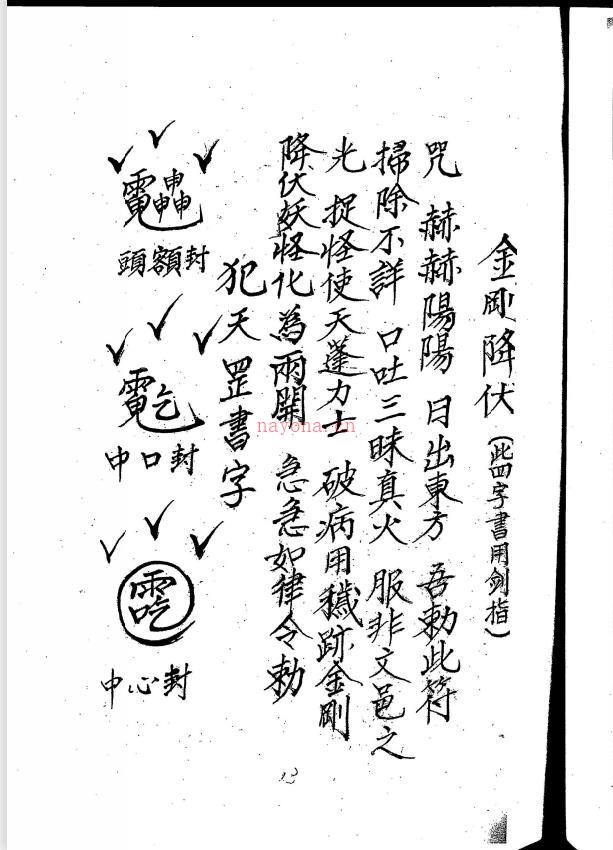 金剛降伏（此四字書用劍指）
咒 赫赫陽陽 日出東方 吾勅此符
掃除不詳 口吐三昧真火 服非文邑之
光 捉怪使天蓬力士 破病用穢跡金剛
降伏妖怪化為雨開 急急如律令勅
犯天罡書字
頭額封
中口封
中心封
nayona.cn
12